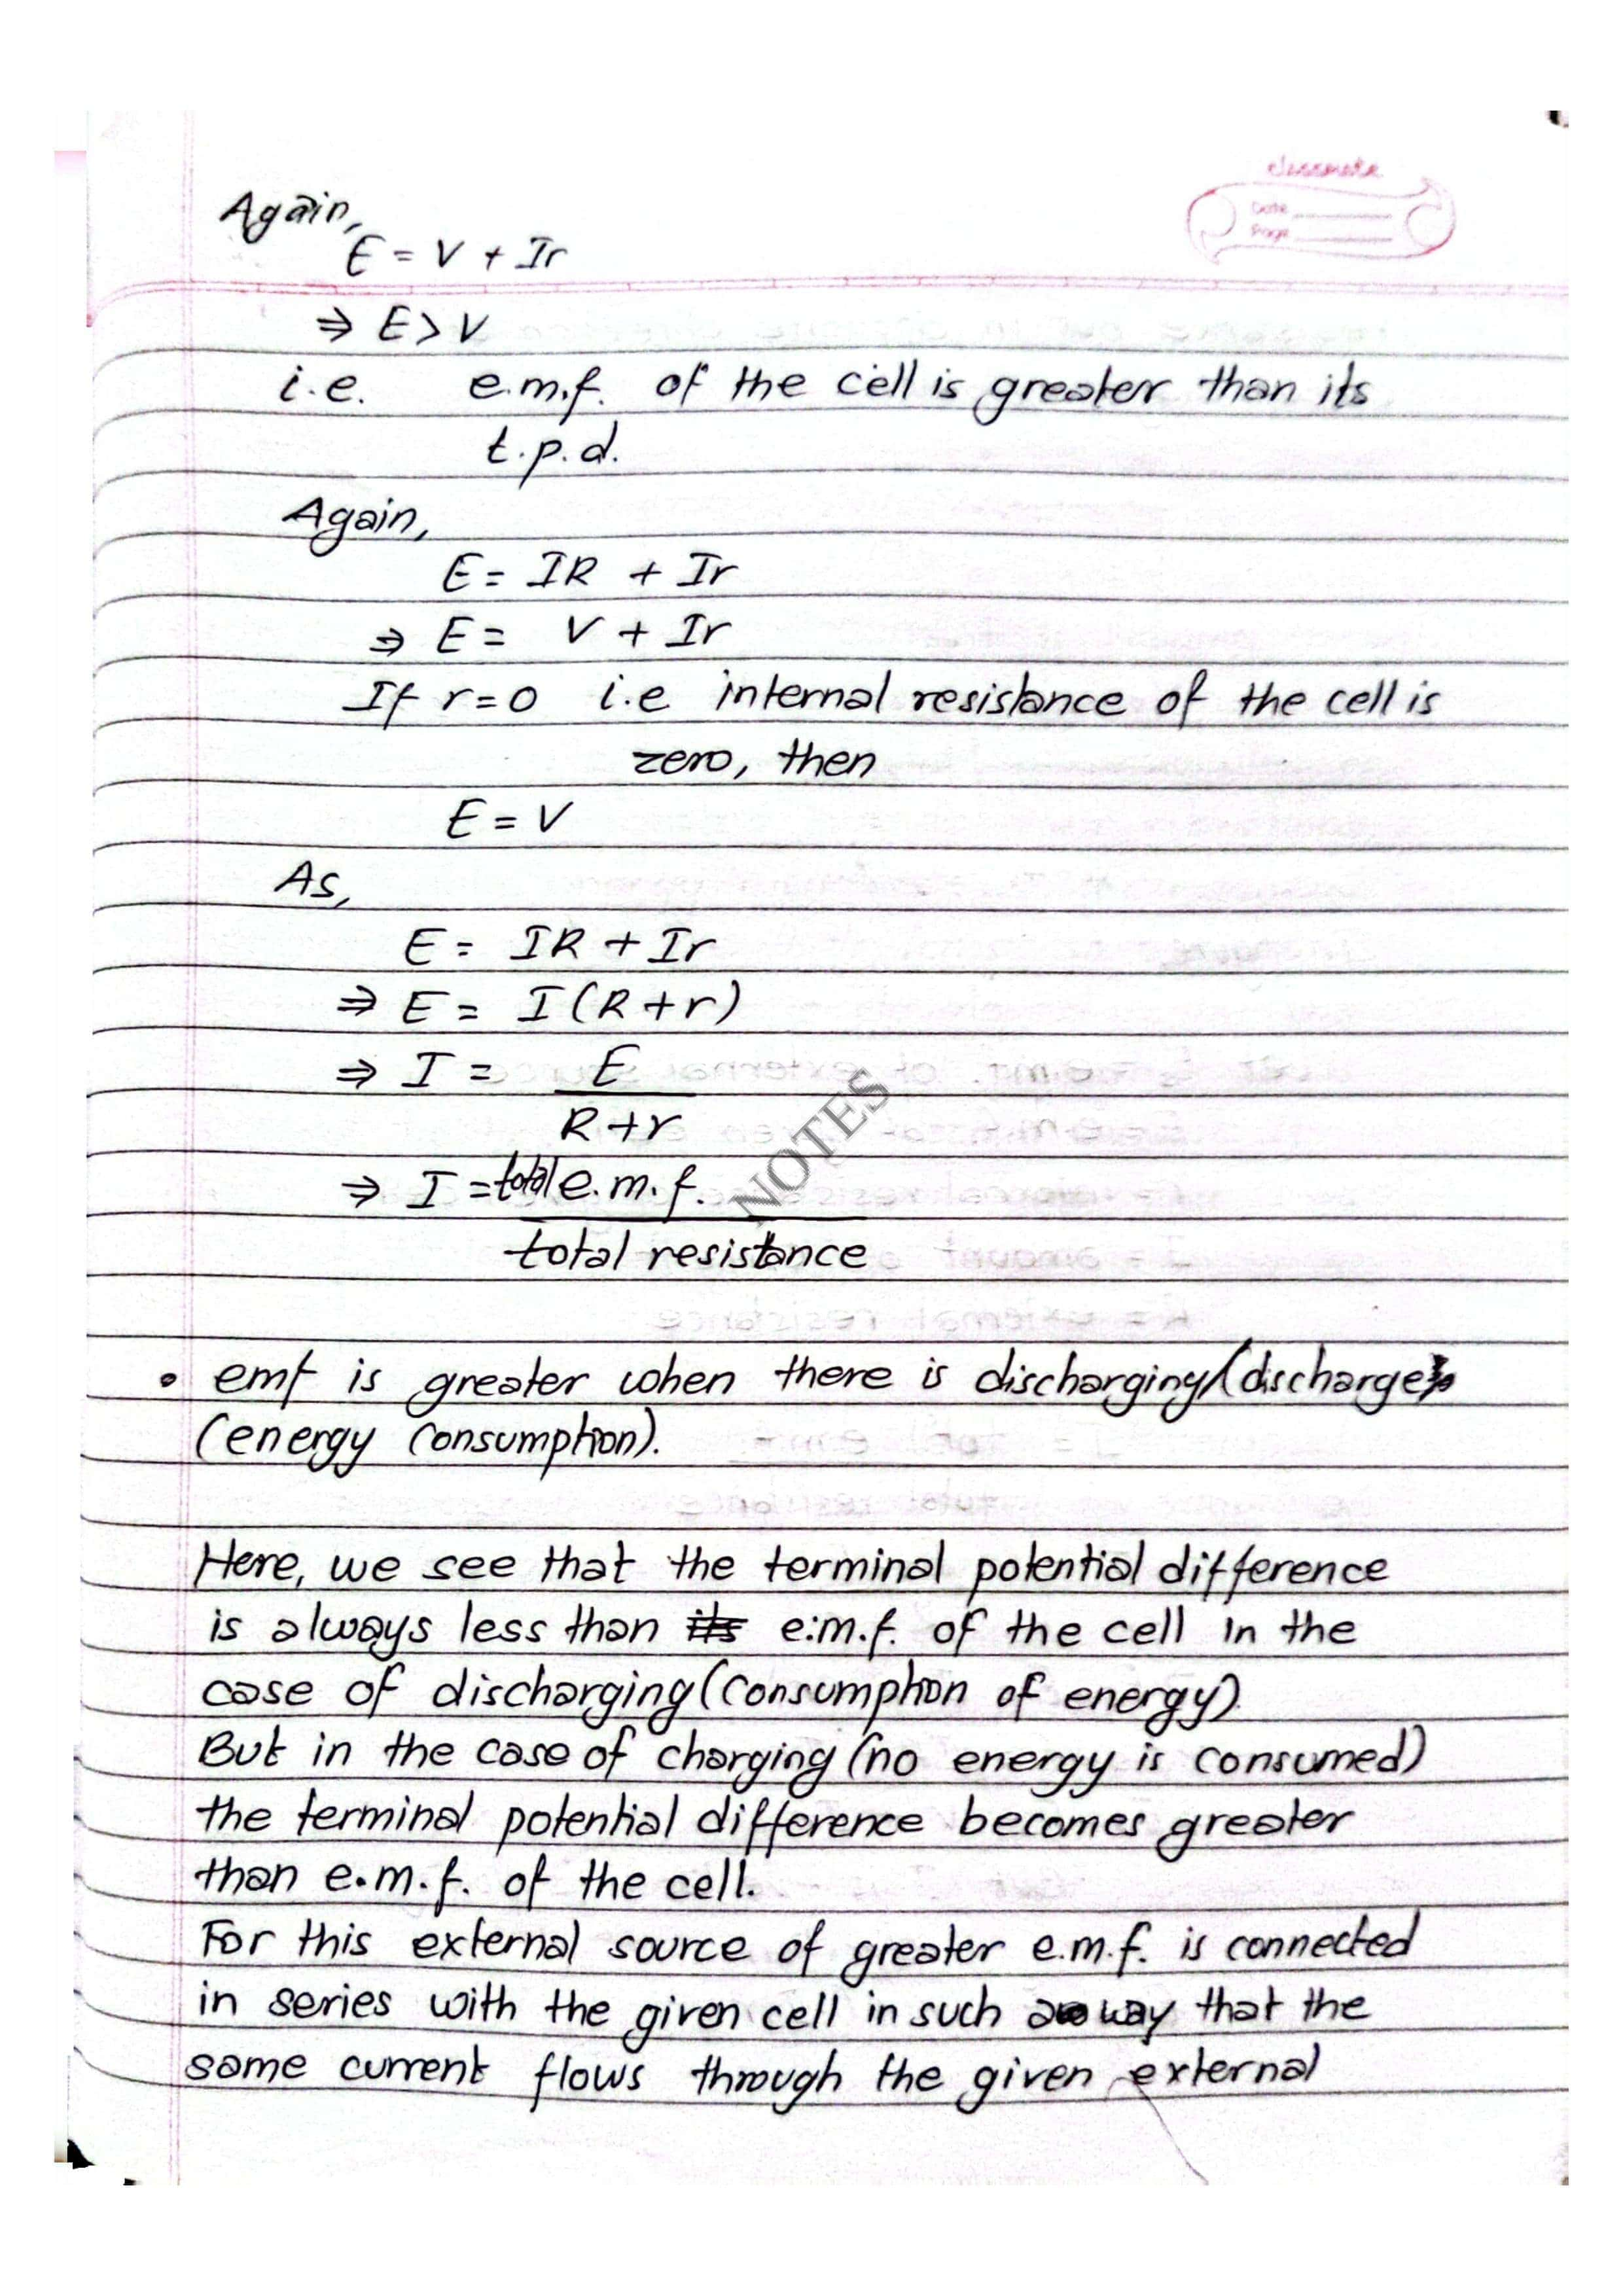 classmate
Date
Page
Again,
E = V + Ir
⇒ E > V
i.e. e.m.f. of the cell is greater than its
t.p.d.
Again,
E = IR + Ir
⇒ E = V + Ir
If r = 0 i.e internal resistance of the cell is
zero, then
E = V
As,
E = IR + Ir
⇒ E = I(R+r)
⇒ I = E
R+r
⇒ I = total e.m.f.
total resistance
NOTES
• emf is greater when there is discharging/(discharge)
(energy consumption).
Here, we see that the terminal potential difference
is always less than its e.m.f. of the cell in the
case of discharging (consumption of energy).
But in the case of charging (no energy is consumed)
the terminal potential difference becomes greater
than e.m.f. of the cell.
For this external source of greater e.m.f. is connected
in series with the given cell in such a way that the
same current flows through the given external